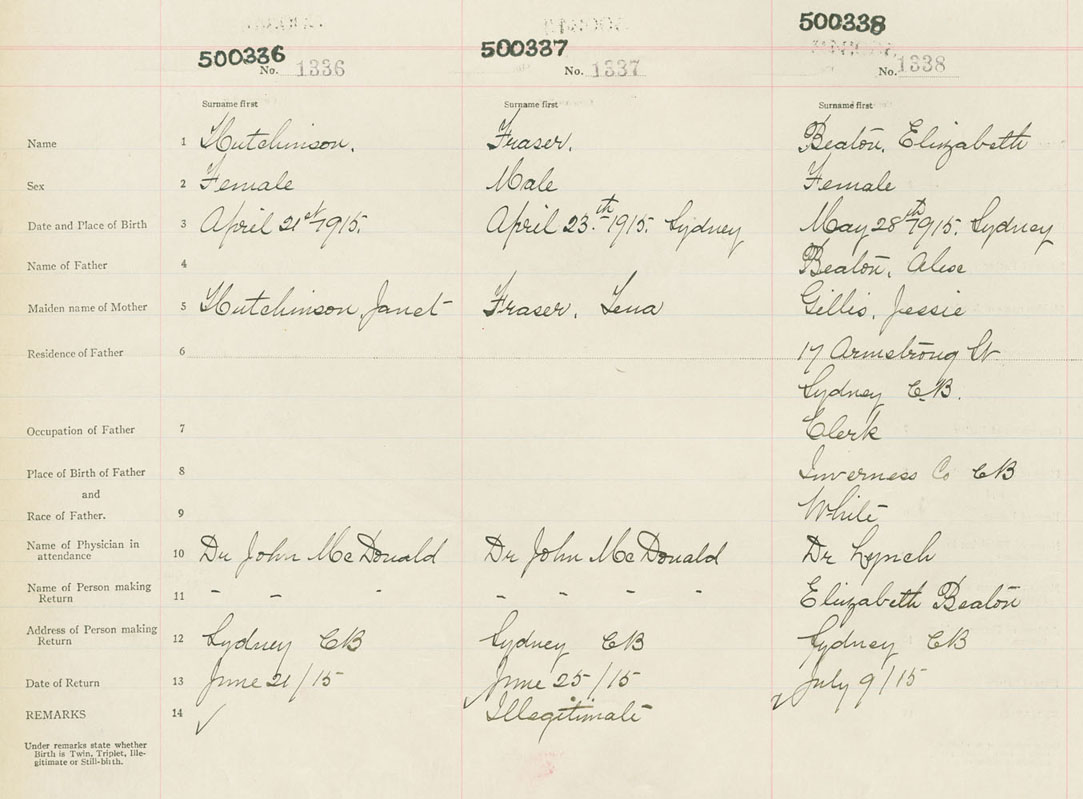 500336 500337 500338
No. 1336 No. 1337 No. 1338
Surname first Surname first Surname first
Name 1 Hutchinson, Fraser, Beaton, Elizabeth
Sex 2 Female Male Female
Date and Place of Birth 3 April 21st 1915. April 23th 1915. Sydney May 28th 1915. Sydney
Name of Father 4 Beaton,
Maiden name of Mother 5 Hutchinson, Janet Fraser, Lena Gillis, Jessie
Residence of Father 6 17 Armstrong St
Sydney C.B.
Occupation of Father 7 Clerk
Place of Birth of Father 8 Inverness Co CB
and
Race of Father. 9 White
Name of Physician in
attendance 10 Dr John McDonald Dr John McDonald Dr Lynch
Name of Person making
Return 11 - - - - - - - Elizabeth Beaton
Address of Person making
Return 12 Sydney CB Sydney CB Sydney CB
Date of Return 13 June 21/15 June 25/15 July 9/15
REMARKS 14 ✓ Illegitimate
Under remarks state whether
Birth is Twin, Triplet, Ille-
gitimate or Still-birth.